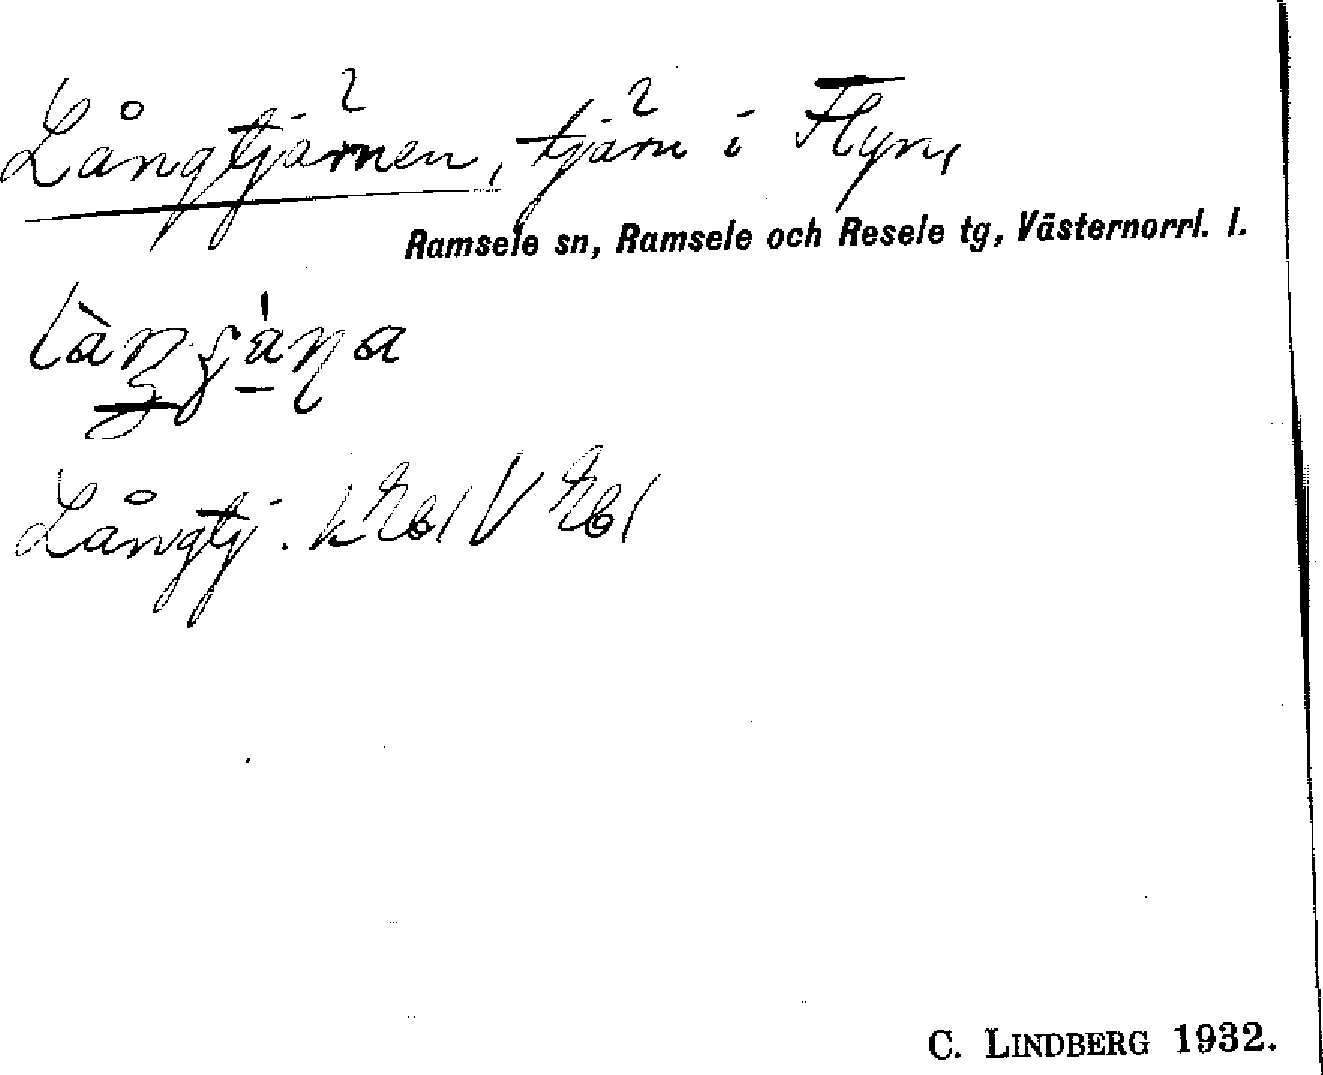 Långtjärnen, tjärn i Flyn,
Ramsele sn, Ramsele och Resele tg, Västernorrl. l.
Långtj.
C. LINDBERG 1932.